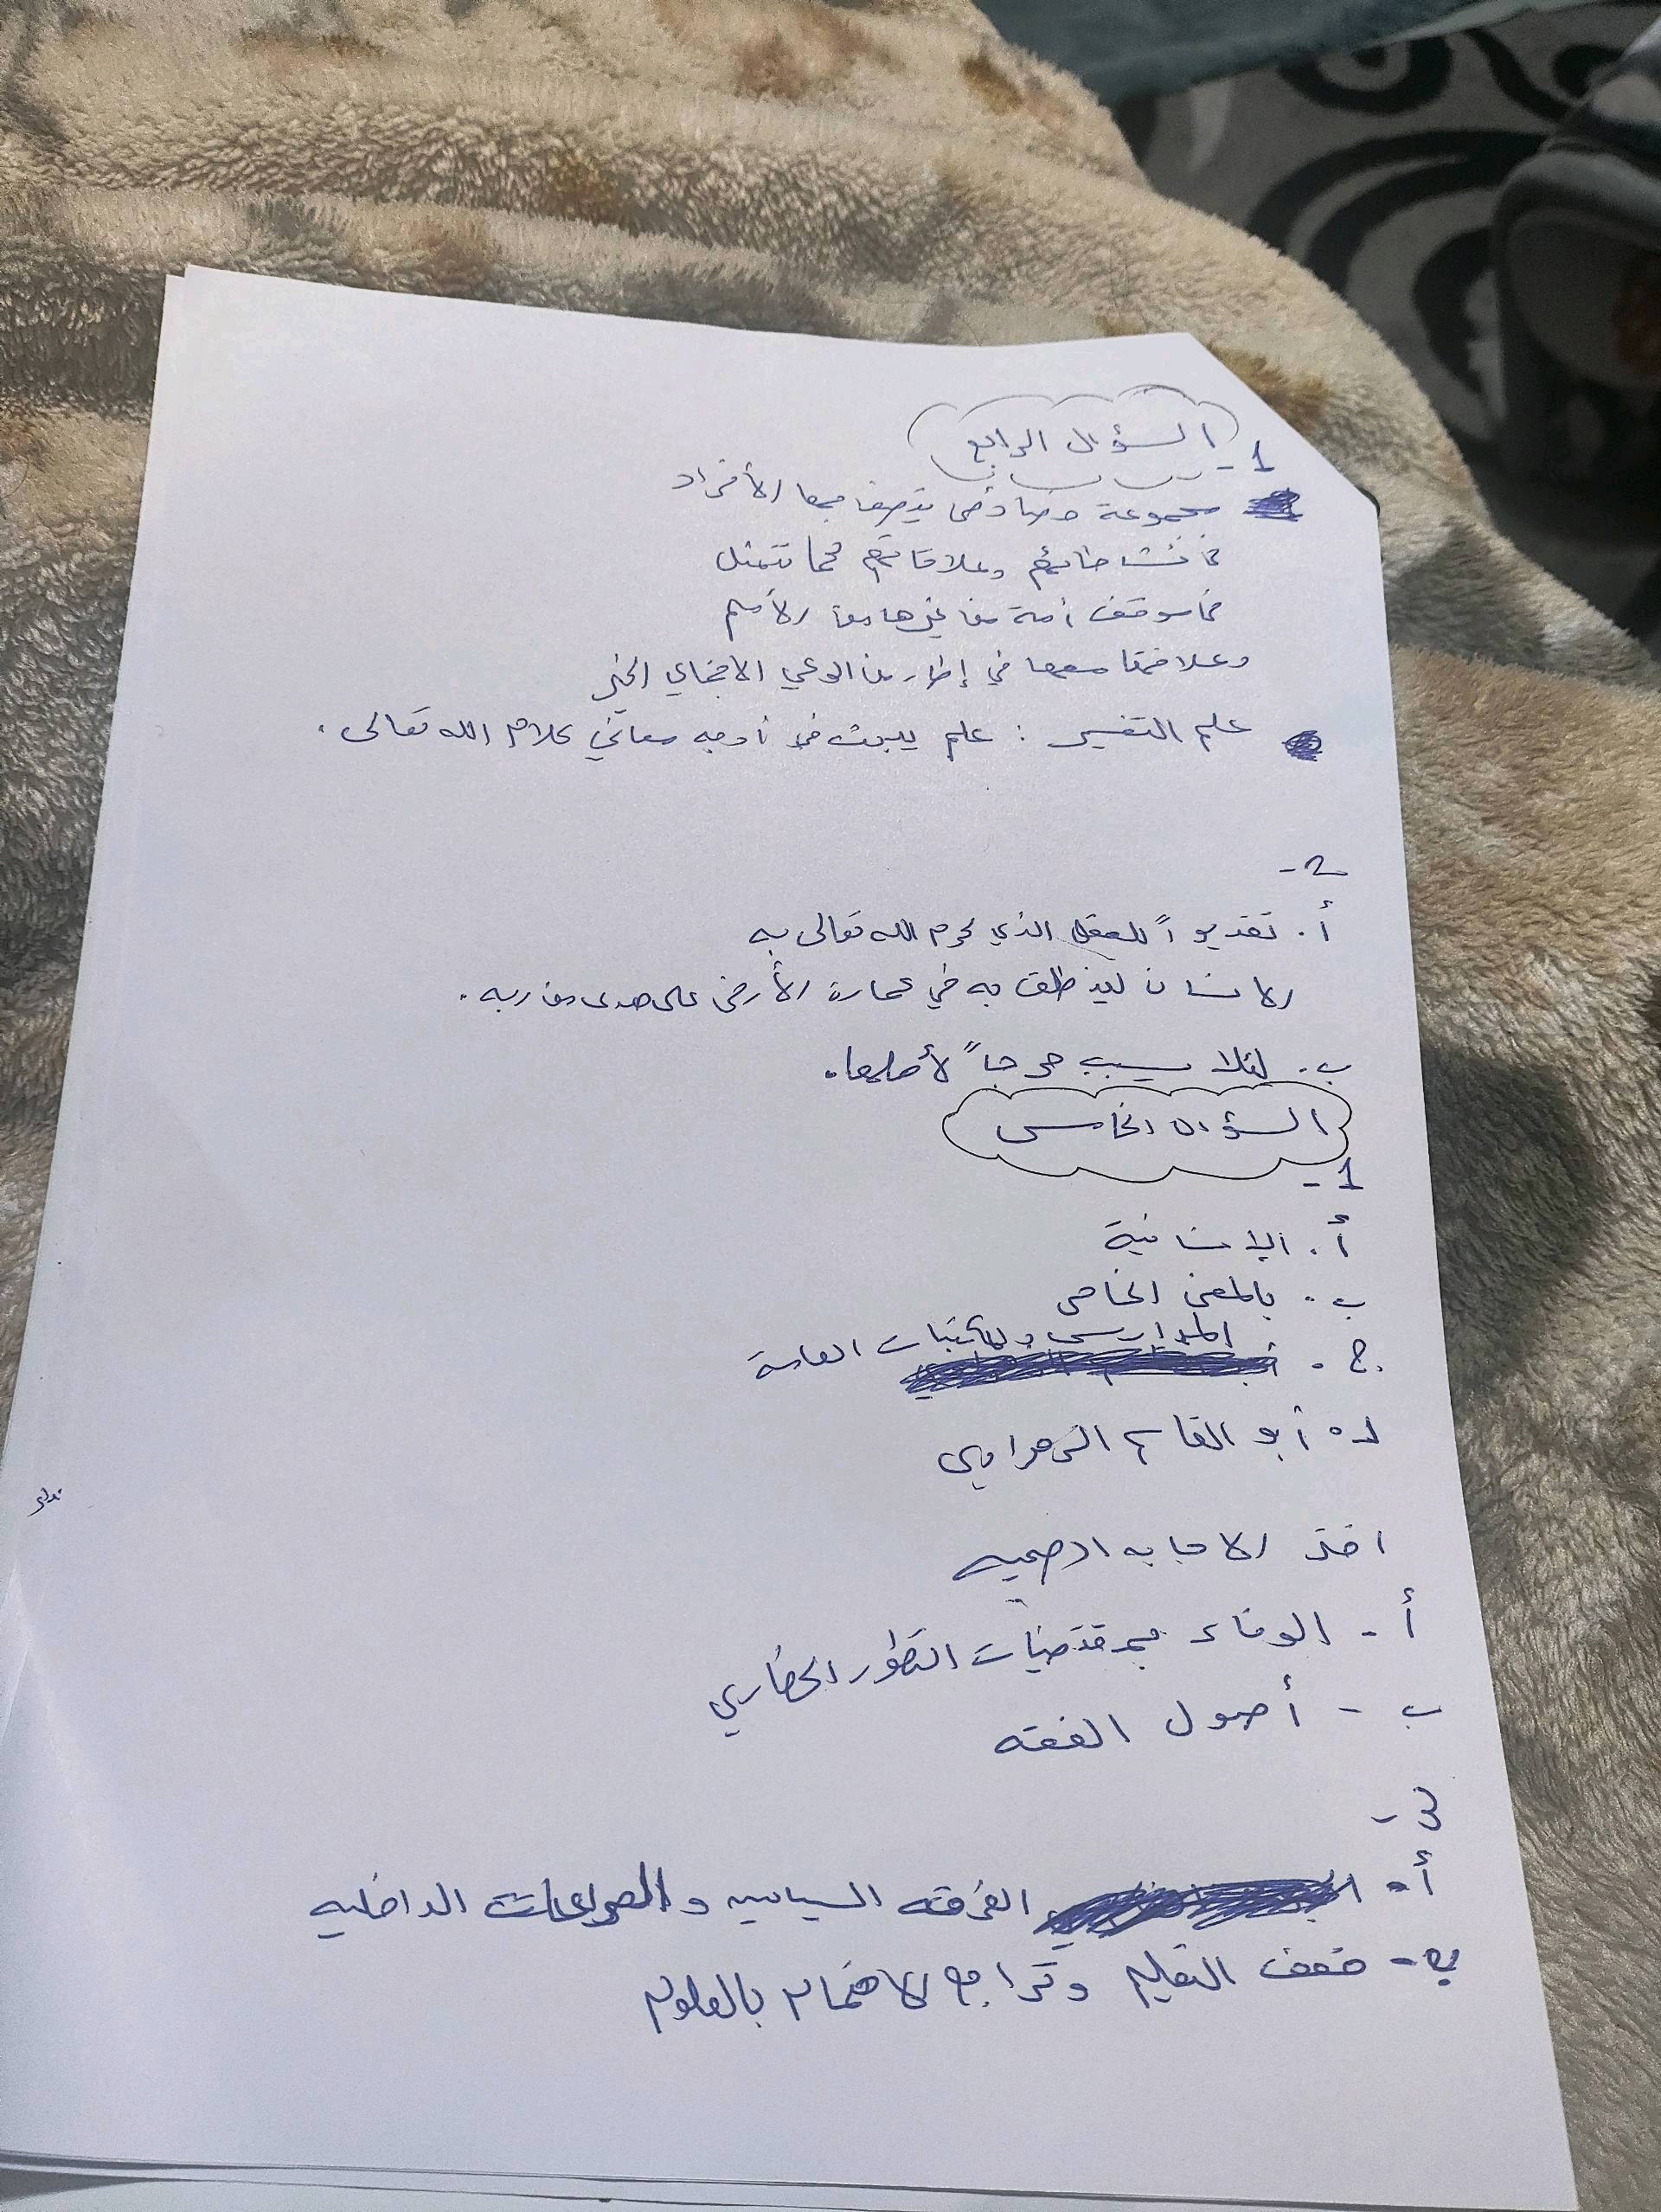 السؤال الرابع
1-
مجموعة خصائص يتصف بها الأفراد
في نشاطاتهم وعلاقاتهم كما تتمثل
في موقف أمة من غيرها من الأمم
وعلاقتها معها في إطار من الوعي الاجتماعي الخير
علم التفسير : علم يبحث في أوجه معاني كلام الله تعالى .
2-
أ. تقديراً للعقل الذي كرم الله تعالى به
الانسان لينطلق به في عمارة الأرض على هدى من ربه .
ب. لئلا يسبب حرجاً لأهلها .
السؤال الخامس
1-
أ. الإنسانية
ب. بالمعنى الخاص
ج. المدارس والمكتبات العامة
د. أبو القاسم الزهراوي
اختر الاجابه الصحيحه
أ - الوفاء بمقتضيات التطور الحضاري
ب - أصول الفقه
3-
أ- الفرقه السياسيه والصراعات الداخليه
ب- ضعف التعليم وتراجع الاهتمام بالعلوم